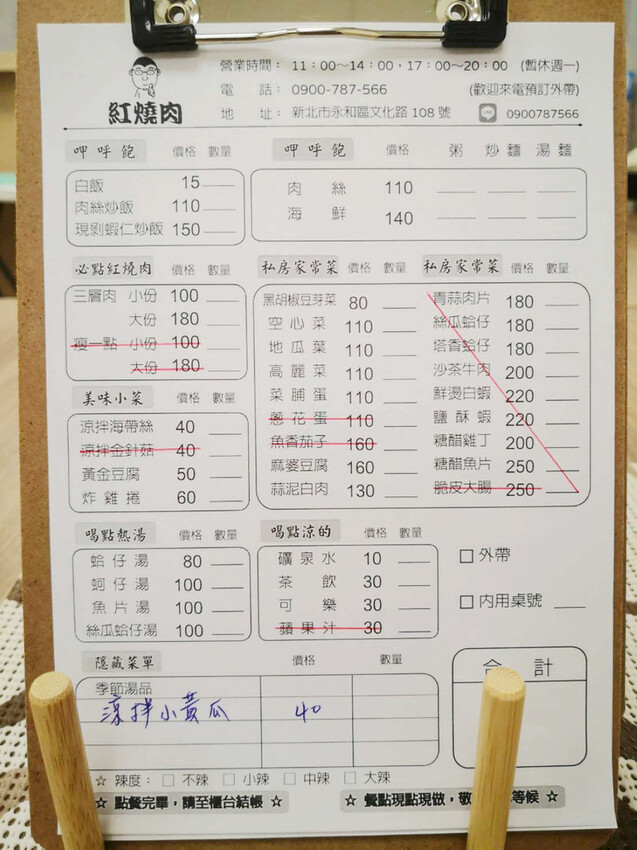 紅燒肉
營業時間： 11：00～14：00，17：00～20：00 (暫休週一)
電　　話： 0900-787-566 (歡迎來電預訂外帶)
地　　址： 新北市永和區文化路 108 號 0900787566
呷呼飽 價格 數量
白飯 15
肉絲炒飯 110
現剝蝦仁炒飯 150
呷呼飽 價格 粥 炒麵 湯麵
肉絲 110
海鮮 140
必點紅燒肉 價格 數量
三層肉 小份 100
大份 180
瘦一點 小份 100
大份 180
美味小菜 價格 數量
涼拌海帶絲 40
涼拌金針菇 40
黃金豆腐 50
炸雞捲 60
私房家常菜 價格 數量
黑胡椒豆芽菜 80
空心菜 110
地瓜葉 110
高麗菜 110
菜脯蛋 110
蔥花蛋 110
魚香茄子 160
麻婆豆腐 160
蒜泥白肉 130
私房家常菜 價格 數量
青蒜肉片 180
絲瓜蛤仔 180
塔香蛤仔 180
沙茶牛肉 200
鮮燙白蝦 220
鹽酥蝦 220
糖醋雞丁 200
糖醋魚片 250
脆皮大腸 250
喝點熱湯 價格 數量
蛤仔湯 80
蚵仔湯 100
魚片湯 100
絲瓜蛤仔湯 100
喝點涼的 價格 數量
礦泉水 10
茶飲 30
可樂 30
蘋果汁 30
□ 外帶
□ 內用桌號
隱藏菜單 價格 數量
季節湯品
涼拌小黃瓜 40
合計
☆ 辣度： □ 不辣 □ 小辣 □ 中辣 □ 大辣
☆ 點餐完畢，請至櫃台結帳 ☆
☆ 餐點現點現做，敬 等候 ☆